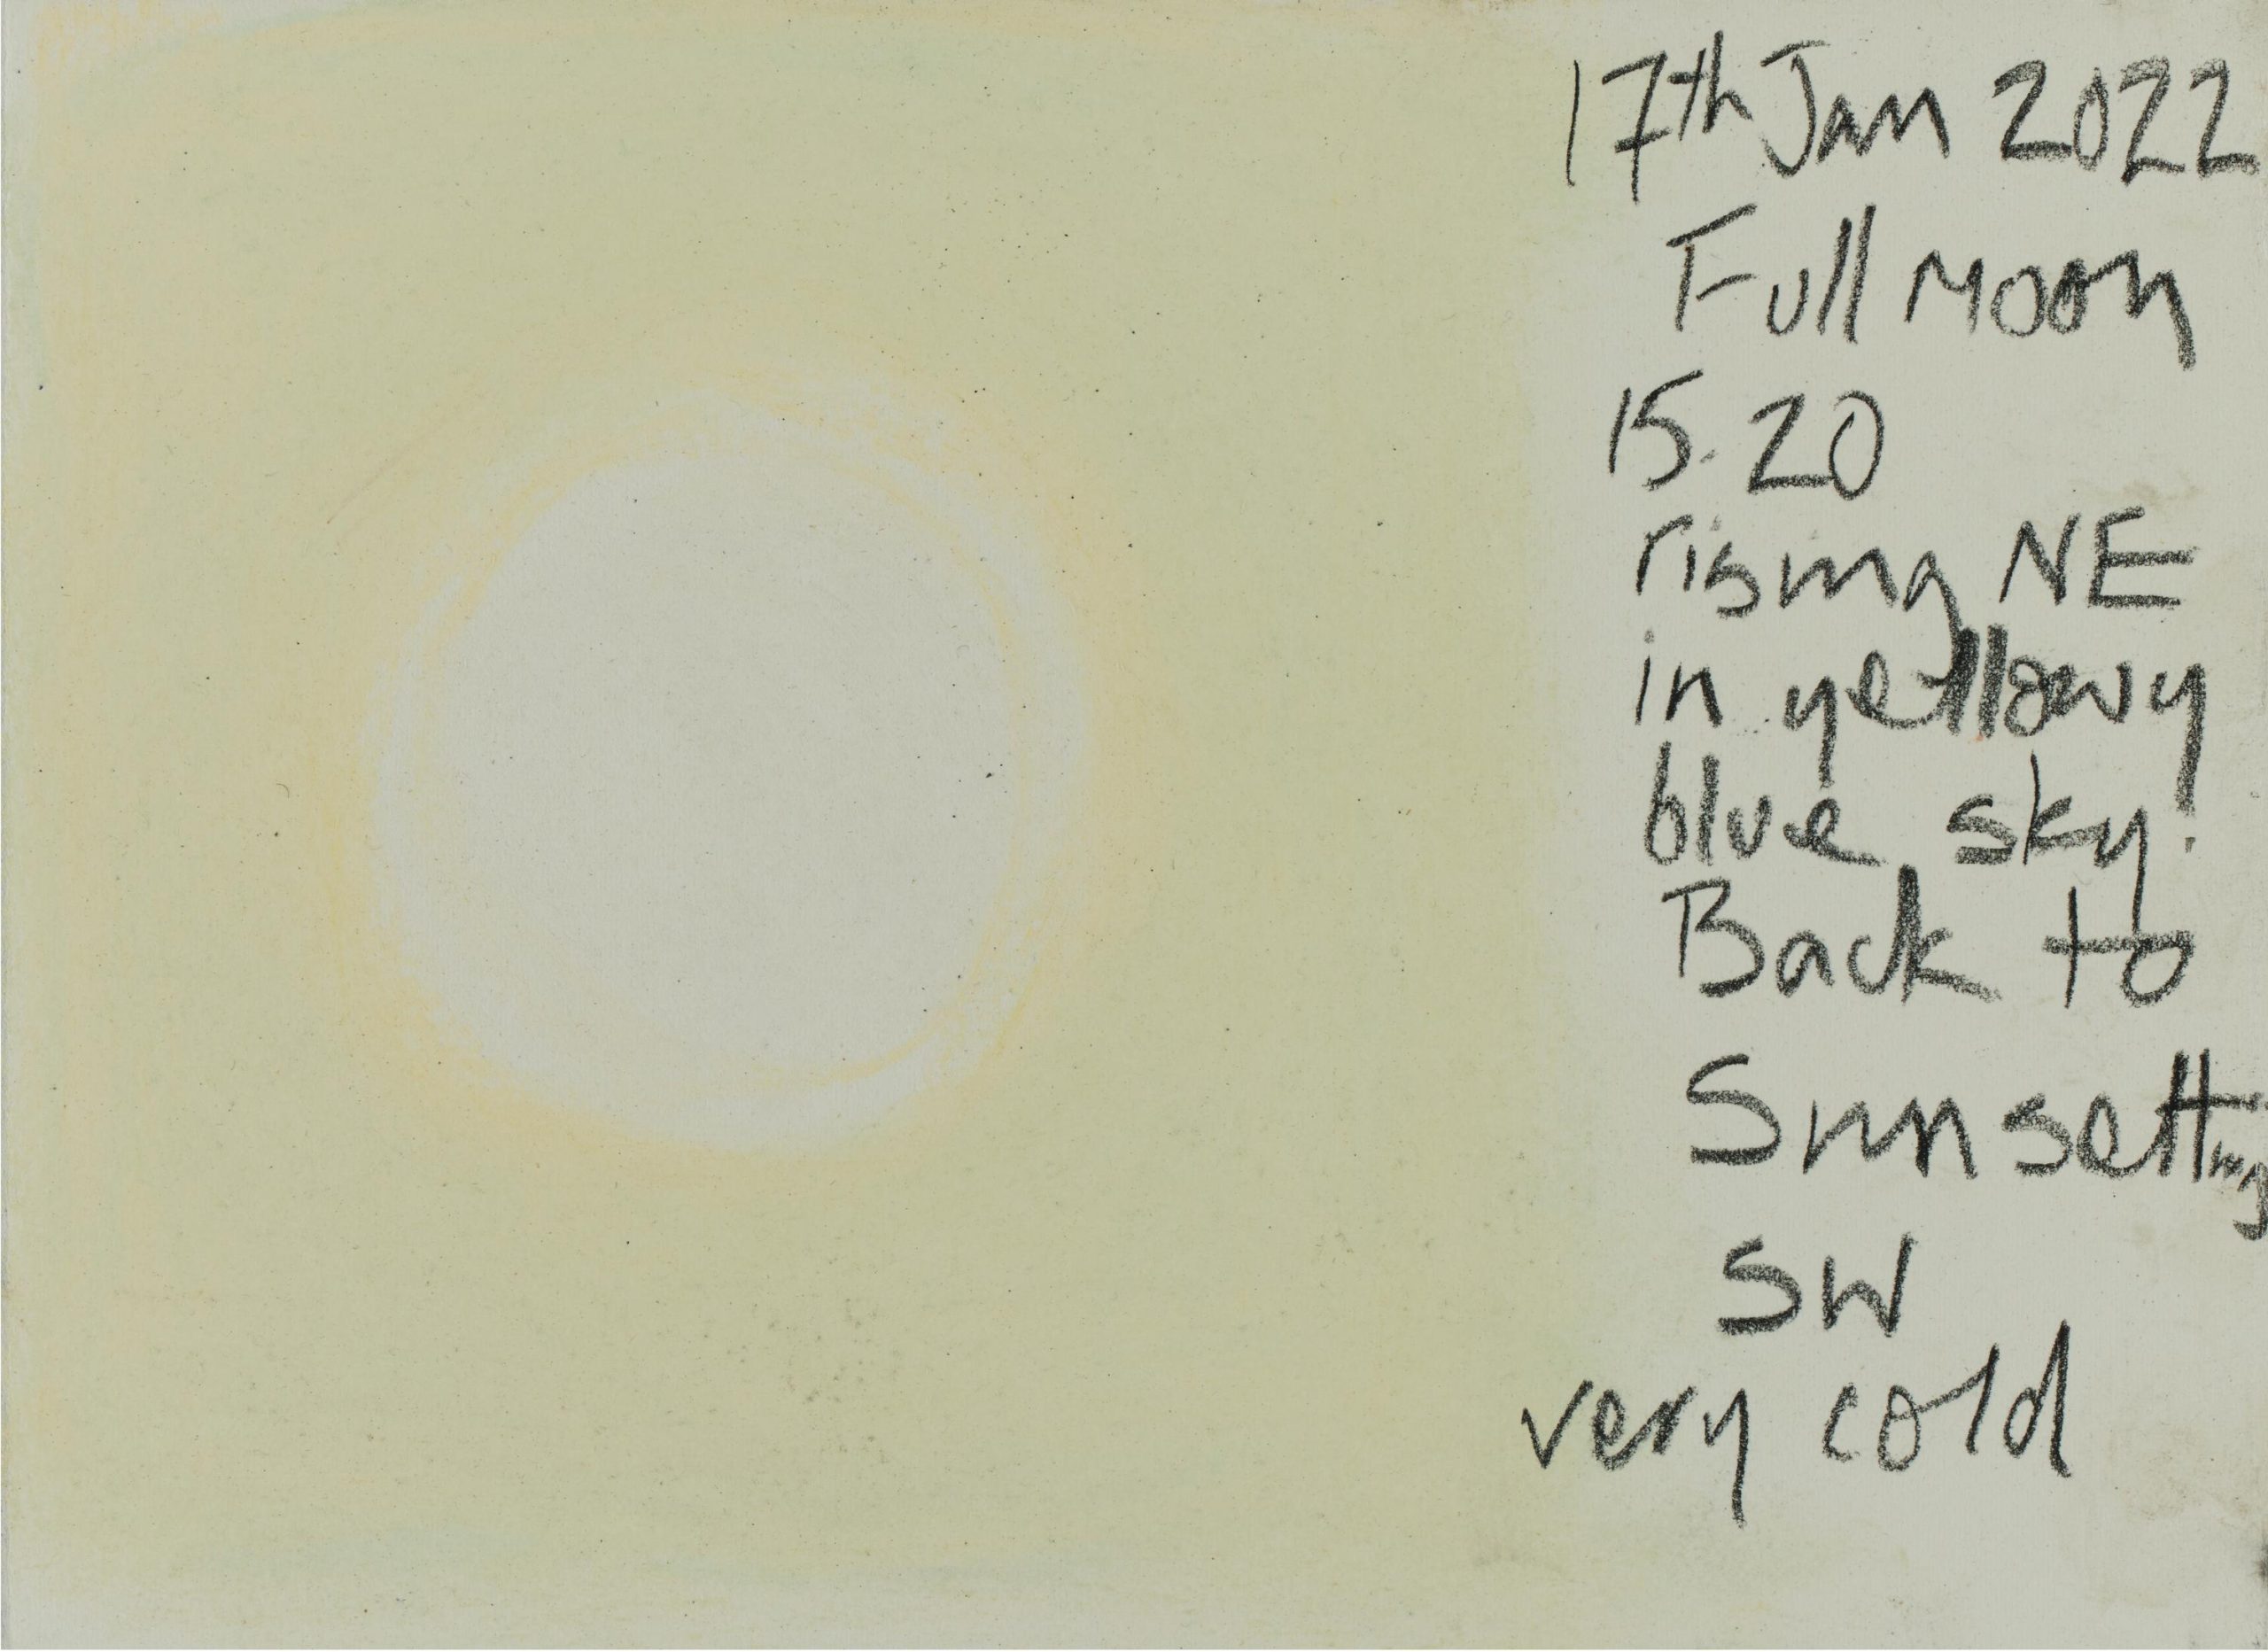 17th Jan 2022
Full Moon
15.20
rising NE
in yellowy
blue sky!
Back to
Sun setting
SW
very cold